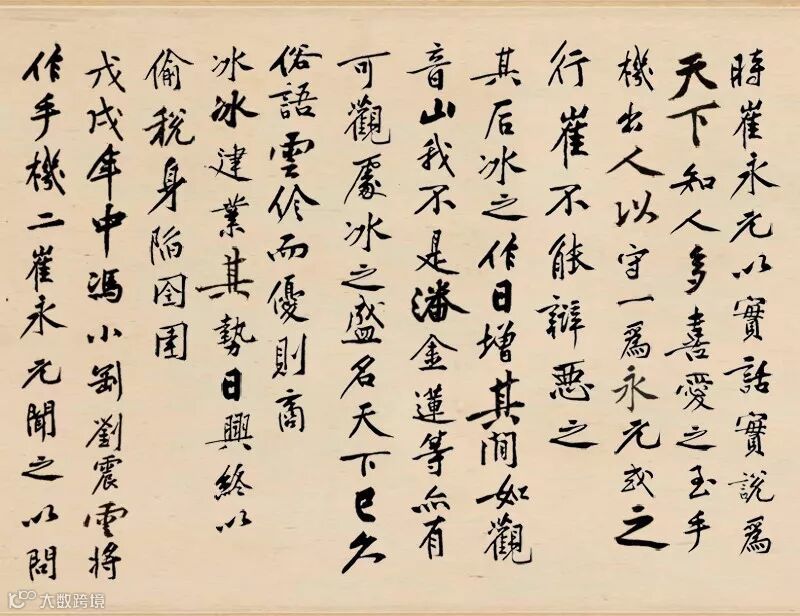 時崔永元以實話實說爲
天下知人多喜愛之至手
機出人以守一爲永元或之
行崔不能辯惡之
其后冰之作日增其間如觀
音山我不是潘金蓮等亦有
可觀處冰之盛名天下已久
俗語雲伶而優則商
冰冰建業其勢日興終以
偷稅身陷囹圄
戊戌年中馮小剛劉震雲將
作手機二崔永元聞之以問
大数跨境